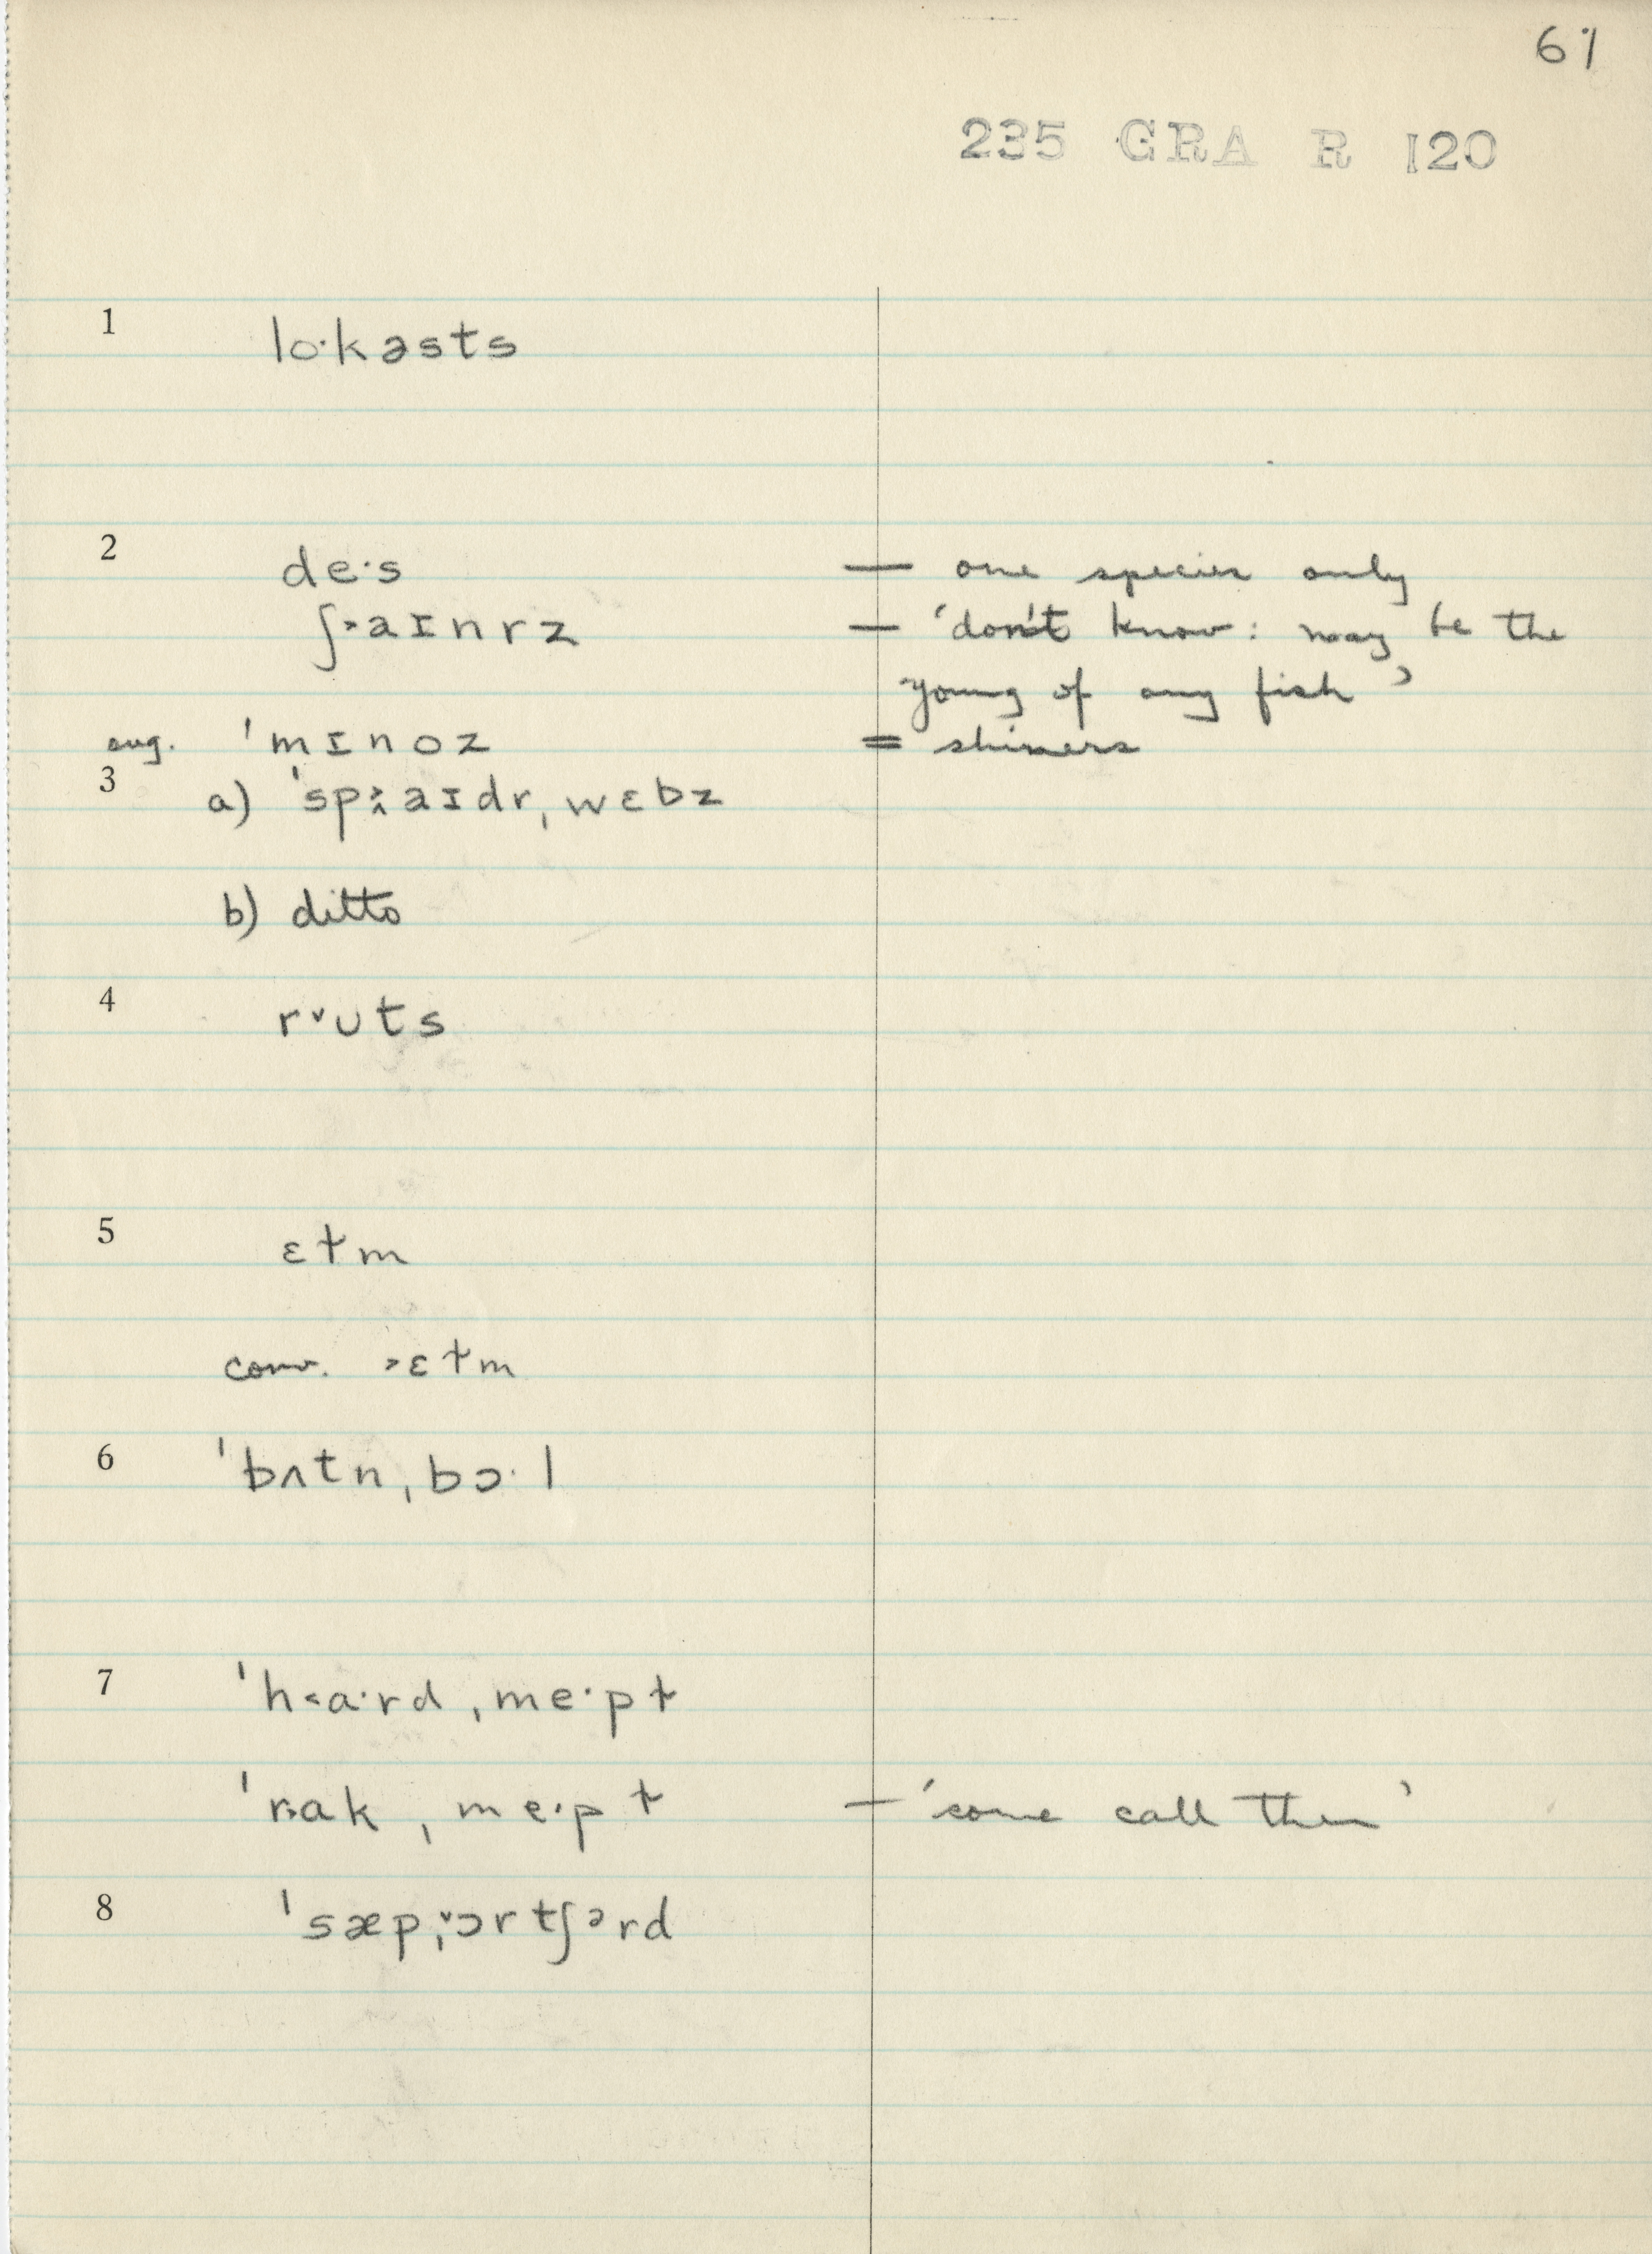 61
235 GRA R 120
1 lo·kəsts
2 de·s — one species only
ʃ˃aɪnrz — 'don't know: may be the
young of any fish'
sug. ˈmɪnoz = shiners
3 a) ˈspaɪdrˌwɛbz
b) ditto
4 r˅uts
5 ɛɫm
conv. ˃ɛɫm
6 ˈbʌtnˌbɔ·l
7 ˈh˂a·rdˌme·pɫ
ˈr˃akˌme·pɫ — 'some call them'
8 ˈsæpˌ˅ɔrtʃərd